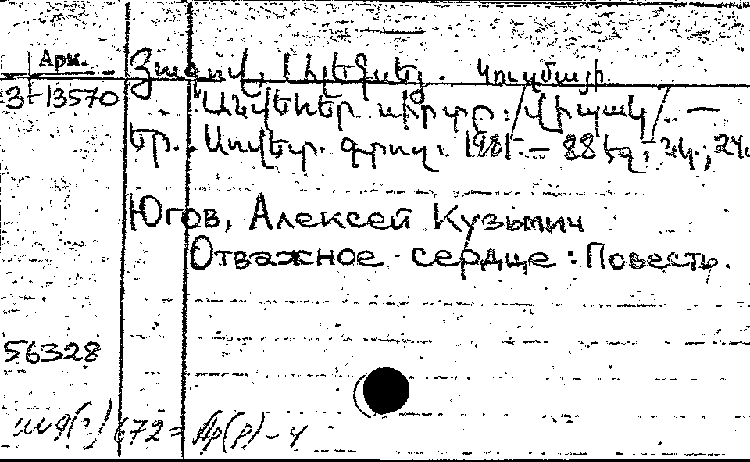 Арм.
З-13570
Յուգով, Ալեքսեյ. Կուզմայի
Անվեհեր սիրտը: /Վիպակ/. —
Եր.: Սովետ. գրող: 1981 — 88 էջ;
Югов, Алексей Кузьмич
Отважное сердце: Повесть.
56328
672 = Ар(р) - 4